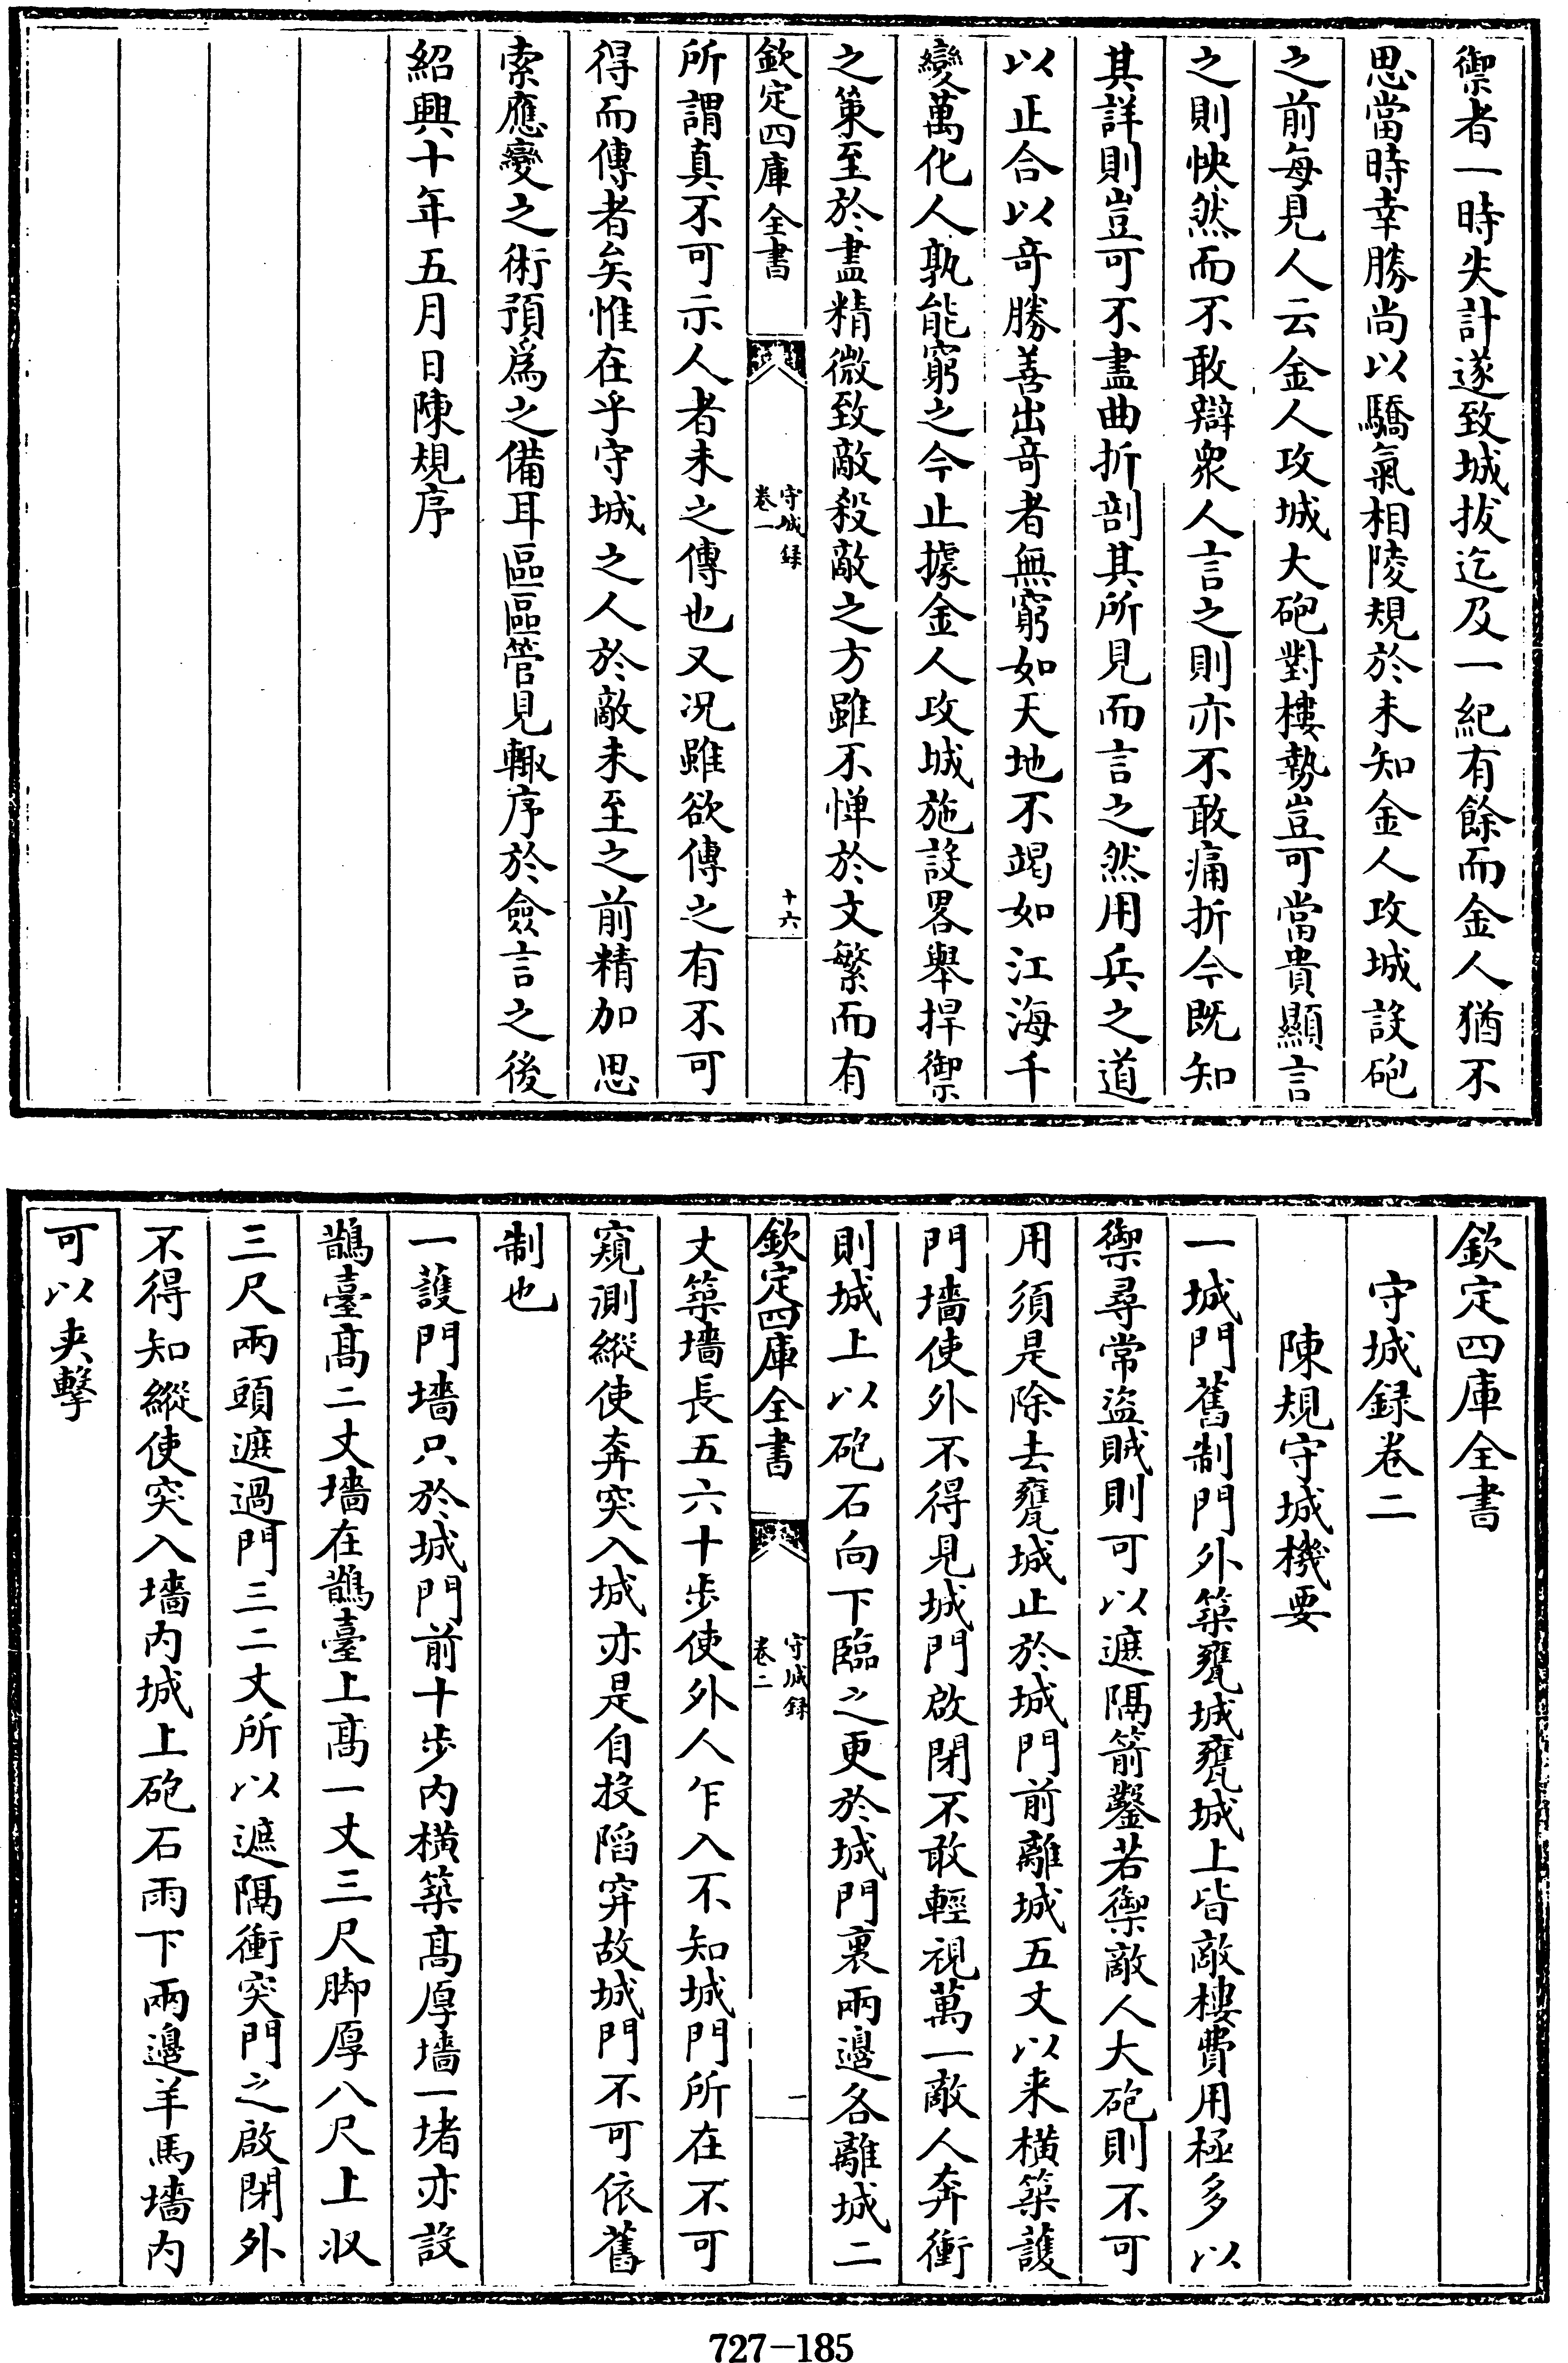 禦者一時失計遂致城拔迄及一紀有餘而金人猶不
思當時幸勝尚以驕氣相陵規於未知金人攻城設砲
之前每見人云金人攻城大砲對樓勢豈可當貴顯言
之則怏然而不敢辯衆人言之則亦不敢痛折今既知
其詳則豈可不盡曲折剖其所見而言之然用兵之道
以正合以竒勝善出竒者無窮如天地不竭如江海千
變萬化人孰能窮之今止據金人攻城施設畧舉捍禦
之策至於盡精微致敵殺敵之方雖不憚於文繁而有
欽定四庫全書
守城録
卷一
十六
所謂真不可示人者未之傳也又况雖欲傳之有不可
得而傳者矣惟在乎守城之人於敵未至之前精加思
索應變之術預爲之備耳區區管見輙序於僉言之後
紹興十年五月日陳規序
欽定四庫全書
守城録卷二
陳規守城機要
一城門舊制門外築甕城甕城上皆敵樓費用極多以
禦尋常盜賊則可以遮隔箭鑿若禦敵人大砲則不可
用須是除去甕城止於城門前離城五丈以来横築護
門墻使外不得見城門啟閉不敢輕視萬一敵人奔衝
則城上以砲石向下臨之更於城門裏兩邉各離城二
欽定四庫全書
守城録
卷二
一
丈築墻長五六十歩使外人乍入不知城門所在不可
窺測縱使奔突入城亦是自投陷穽故城門不可依舊
制也
一護門墻只於城門前十歩内横築髙厚墻一堵亦設
鵲臺髙二丈墻在鵲臺上髙一丈三尺脚厚八尺上收
三尺兩頭遮過門三二丈所以遮隔衝突門之啟閉外
不得知縱使突入墻内城上砲石雨下兩邉羊馬墻内
可以夹擊
727-185